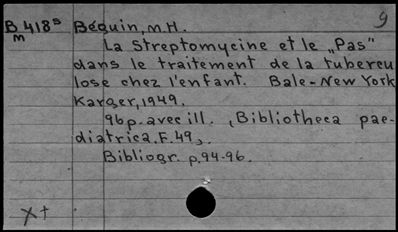 9
B 418s Béguin, M.H.
m
La Streptomycine et le „Pas"
dans le traitement de la tubercu
lose chez l'enfant. Bale-New York
Karger, 1949.
96p. avec ill. (Bibliotheca pae-
diatrica. F. 49).
Bibliogr. p. 94-96.
X+